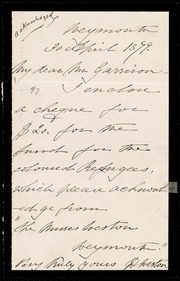 acknowledged
Weymouth
30 April 1879.
My dear Mr Garrison
I enclose
a cheque for
for the
fund for the
colored Refugees,
which please acknowl
edge from
"the Misses Weston
Weymouth."
Very truly yours Weston